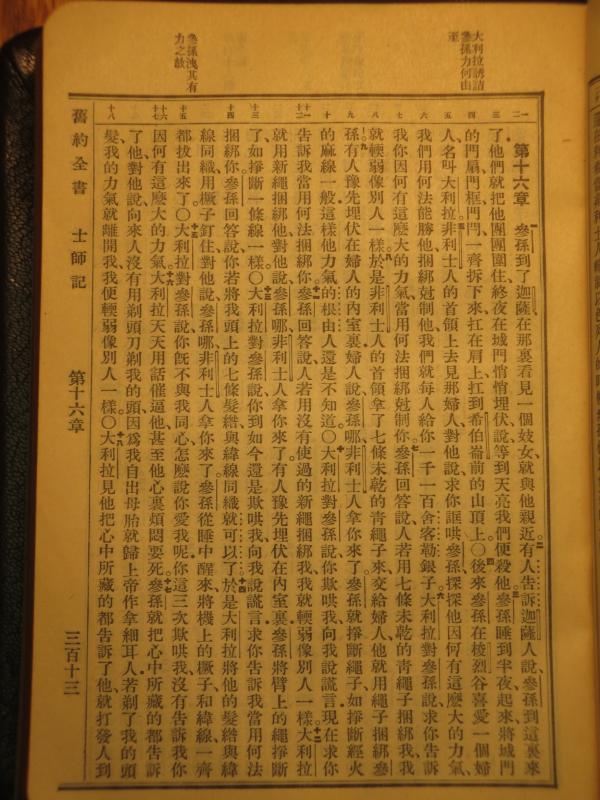 大利拉誘詰
參孫力何由
至
參孫洩其有
力之故
第十六章 一參孫到了迦薩、在那裏看見一個妓女、就與他親近。二有人告訴迦薩人說、參孫到這裏來
了。他們就把他團團圍住、終夜在城門悄悄埋伏、說、等到天亮我們便殺他。三參孫睡到半夜、起來、將城門
的門扇、門框、門閂、一齊拆下來、扛在肩上、扛到希伯崙前的山頂上。〇四後來參孫在梭烈谷喜愛一個婦
人、名叫大利拉。五非利士人的首領上去見那婦人、對他說、求你誆哄參孫、探探他因何有這麼大的力氣、
我們用何法能勝他、捆綁尅制他、我們就每人給你一千一百舍客勒銀子。六大利拉對參孫說、求你告訴
我、你因何有這麼大的力氣、當用何法捆綁尅制你。七參孫回答說、人若用七條未乾的青繩子捆綁我、我
就輭弱像別人一樣。八於是非利士人的首領拿了七條未乾的青繩子來、交給婦人、他就用繩子捆綁參
孫。九有人豫先埋伏在婦人的內室裏。婦人說、參孫哪、非利士人拿你來了。參孫就掙斷繩子、如掙斷經火
的麻線一般。這樣他力氣的根由人還是不知道。〇十大利拉對參孫說、你欺哄我、向我說謊言、現在求你
告訴我當用何法捆綁你。十一參孫回答說、人若用沒有使過的新繩捆綁我、我就輭弱像別人一樣。十二大利拉
就用新繩捆綁他、對他說、參孫哪、非利士人拿你來了。有人豫先埋伏在內室裏。參孫將臂上的繩掙斷
了、如掙斷一條線一樣。〇十三大利拉對參孫說、你到如今還是欺哄我、向我說謊言、求你告訴我當用何法
捆綁你。參孫回答說、你若將我頭上的七條髮綹、與緯線同織、就可以了。十四於是大利拉將他的髮綹與緯
線同織、用橛子釘住、對他說、參孫哪、非利士人拿你來了。參孫從睡中醒來、將機上的橛子、和緯線、一齊
都拔出來了。〇十五大利拉對參孫說、你旣不與我同心、怎麼說你愛我呢、你這三次欺哄我、沒有告訴我、你
因何有這麼大的力氣。十六大利拉天天用話催逼他、甚至他心裏煩悶要死。十七參孫就把心中所藏的都告訴
了他、對他說、向來人沒有用剃頭刀剃我的頭、因爲我自出母胎就歸上帝作拿細耳人、若剃了我的頭
髮、我的力氣就離開我、我便輭弱像別人一樣。〇十八大利拉見他把心中所藏的都告訴了他、就打發人到
舊約全書 士師記 第十六章 三百十三